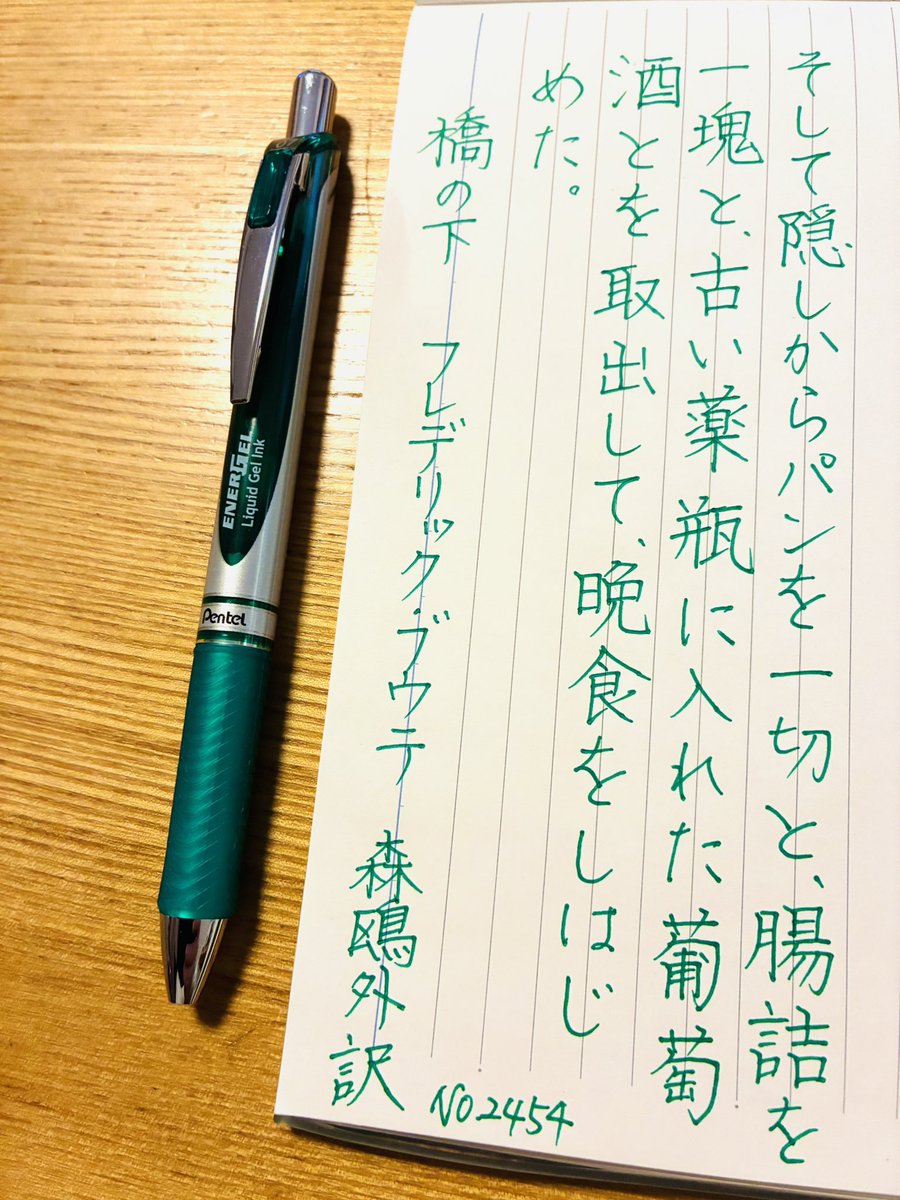 そして隠しからパンを一切と、腸詰を
一塊と、古い薬瓶に入れた葡萄
酒とを取出して、晩食をしはじ
めた。
橋の下 フレデリック・ブウテ 森鴎外訳
NO.2454
ENERGEL
Liquid Gel Ink
Pentel